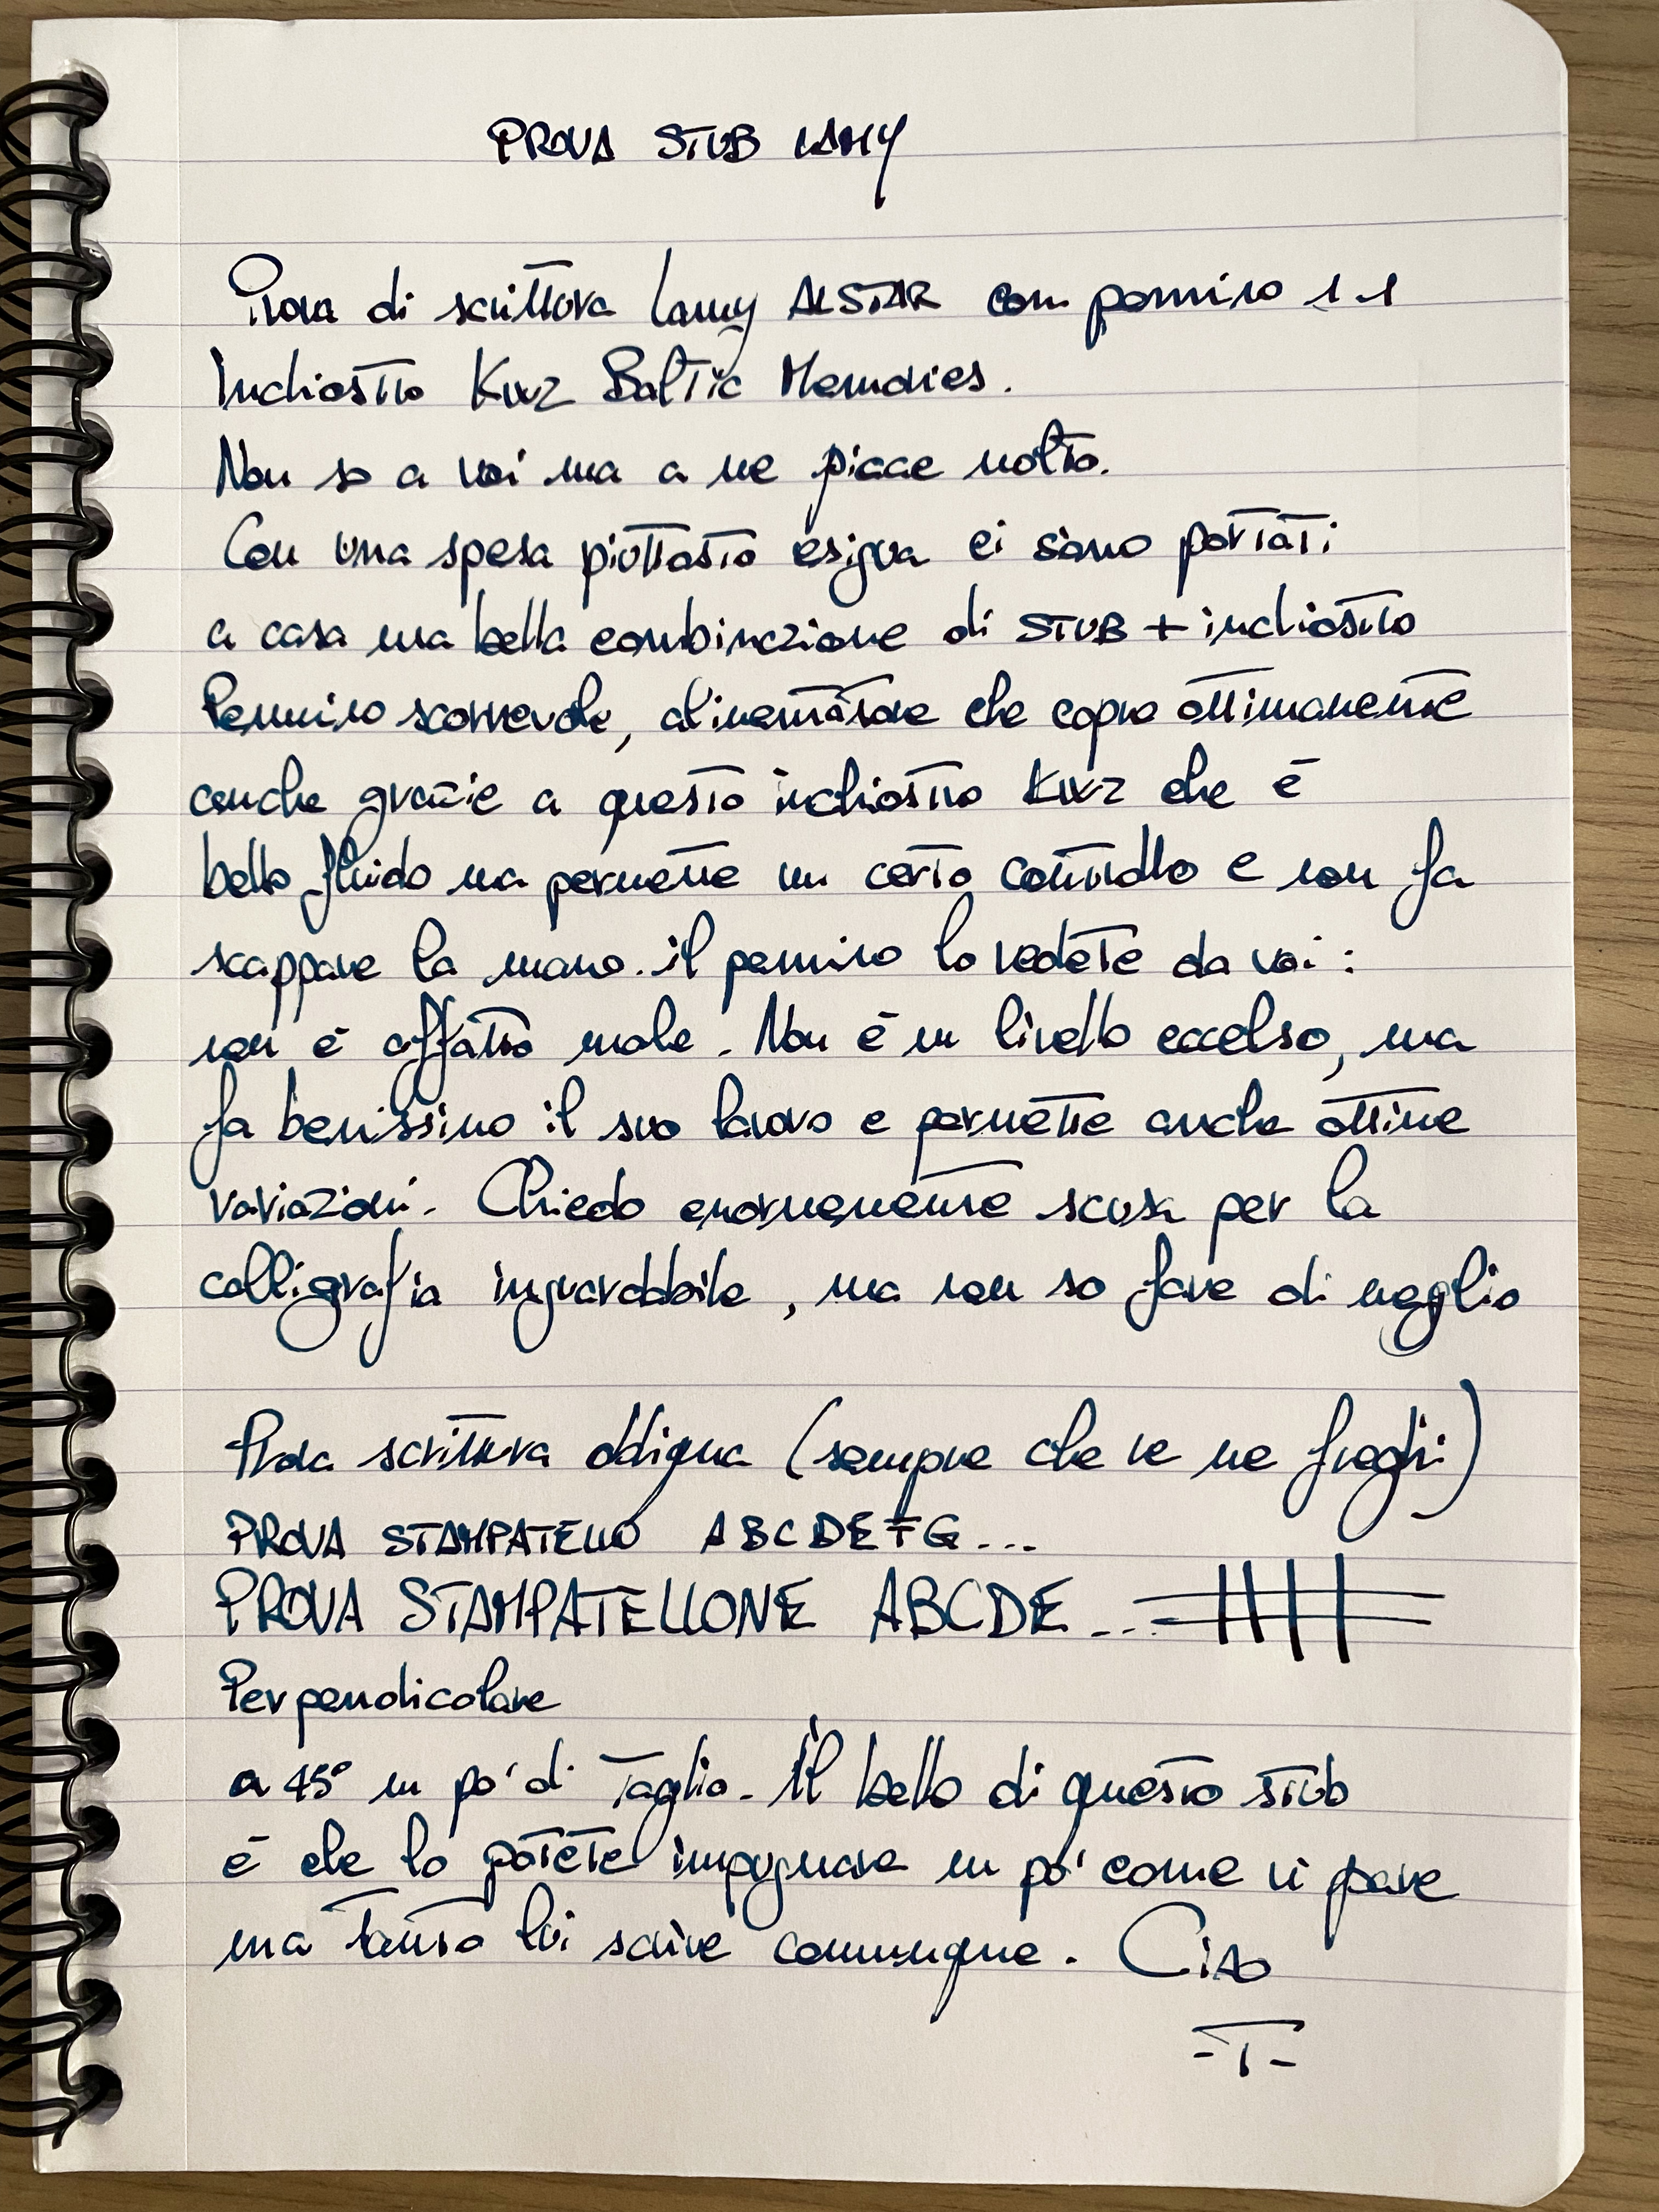 PROVA STUB LAMY
Prova di scrittura Lamy ALSTAR con pennino 1.1
Inchiostro KWZ Baltic Memories.
Non so a voi ma a me piace molto.
Con una spesa piuttosto esigua ci siamo portati
a casa una bella combinazione di STUB + inchiostro
Pennino scorrevole, alimentatore che copre ottimamente
anche grazie a questo inchiostro KWZ che è
bello fluido ma permette un certo controllo e non fa
scappare la mano. il pennino lo vedete da voi :
non è affatto male. Non è un livello eccelso, ma
fa benissimo il suo lavoro e permette anche ottime
variazioni. Chiedo enormemente scusa per la
calligrafia inguardabile, ma non so fare di meglio
Prova scrittura obliqua (sempre che ve ne freghi)
PROVA STAMPATELLO ABCDEFG...
PROVA STAMPATELLONE ABCDE...
Perpendicolare
a 45° un po' di Taglio. Il bello di questo stub
è che lo potete impugnare un po' come vi pare
ma tanto lui scrive comunque. Ciao
-T-